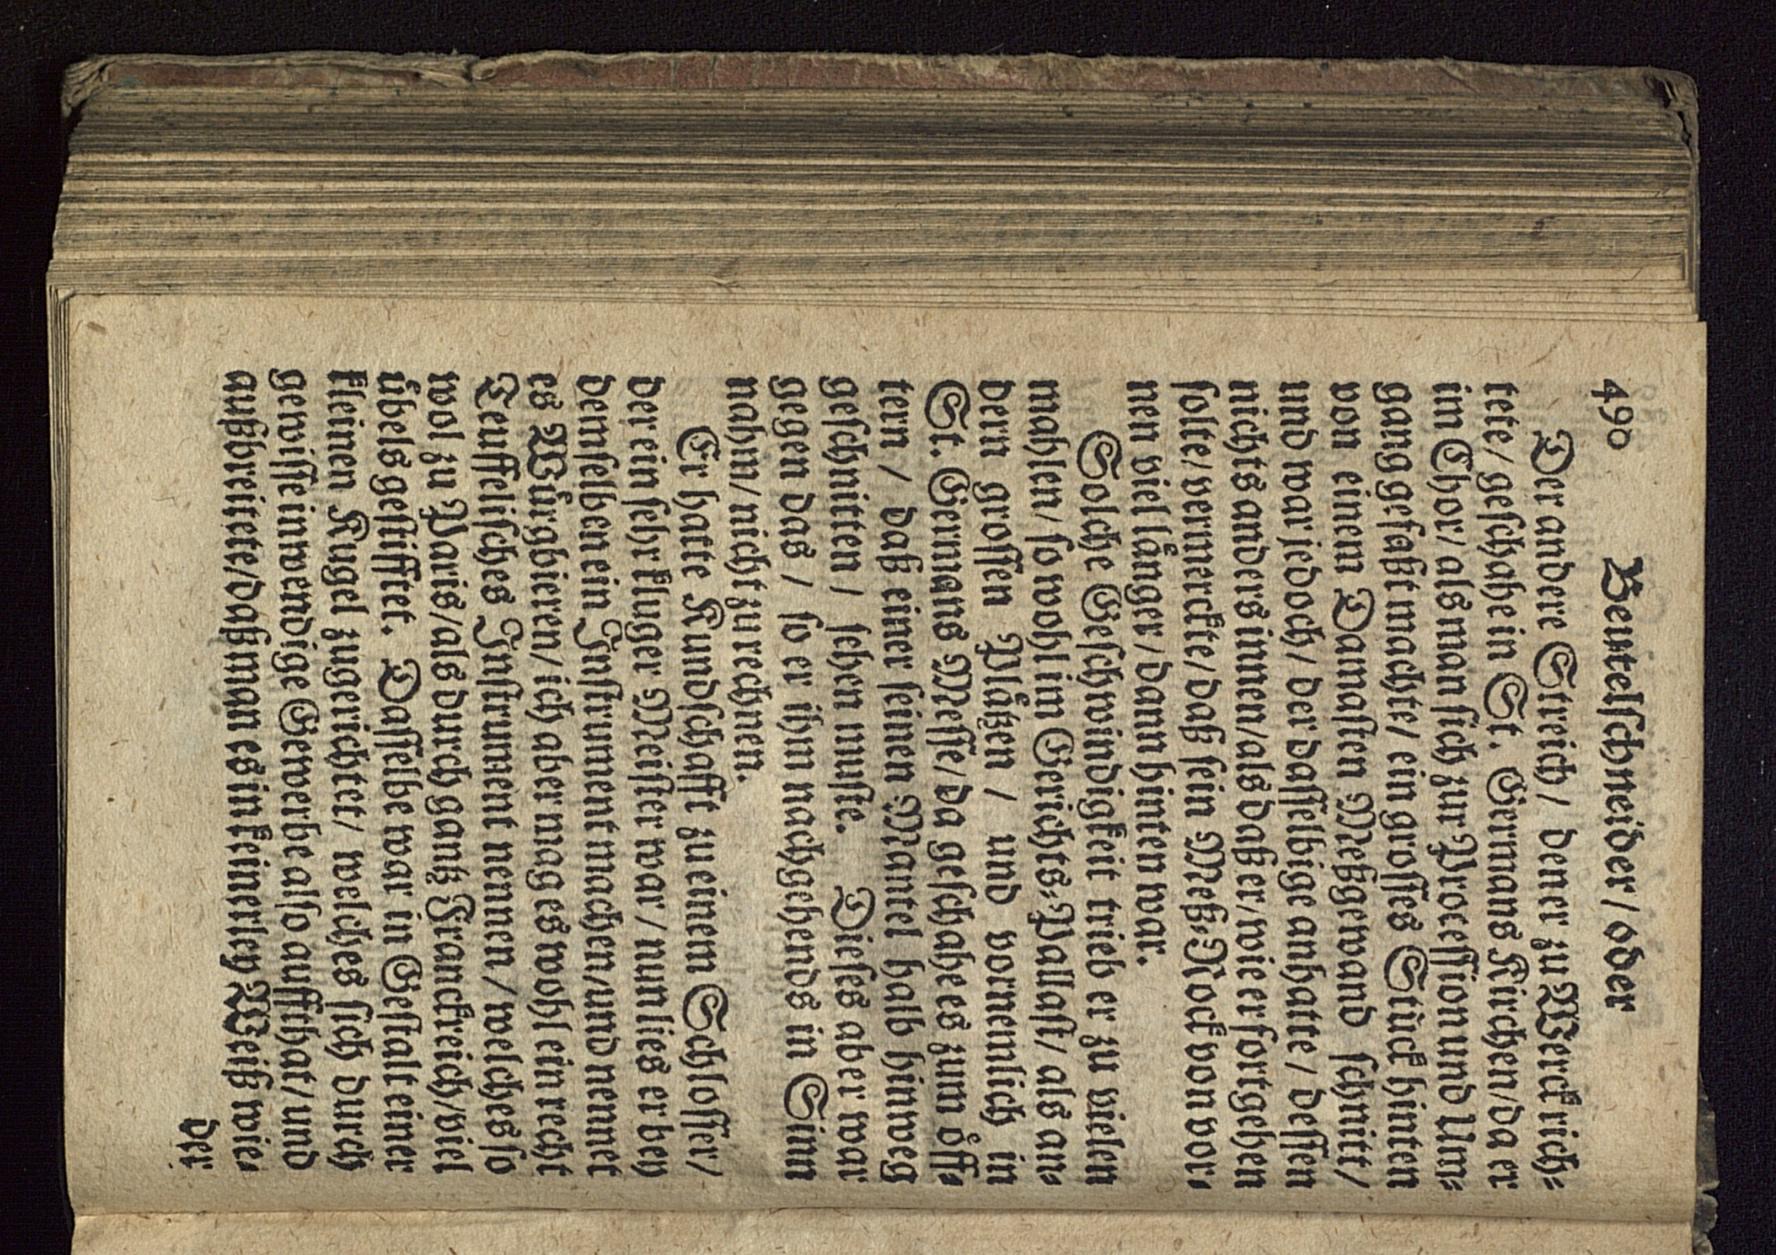 490 Beutelschneider / oder
Der andere Streich / dener zu Werck rich-
tete / geschahe in St. Germans Kirchen / da er
im Chor / als man sich zur Procession und Um-
gang gefaßt machte / ein grosses Stück hinten
von einem Damasten Meßgewand schnitt /
und war jedoch / der dasselbige anhatte / dessen
nichts anders innen / als daß er / wie er fortgehen
solte / vermerckte / daß sein Meß-Rock von vor-
nen viel långer / dann hinten war.
Solche Geschwindigkeit trieb er zu vielen
mahlen / so wohl im Gerichts-Pallast / als an-
dern grossen Plåtzen / und vornemlich in
St. Germans Messe / da geschahe es zum åff-
tern / daß einer seinen Mantel halb hinweg
geschnitten / sehen muste. Dieses aber war
gegen das / so er ihm nachgehends in Sinn
nahm / nicht zu rechnen.
Er hatte Kundschafft zu einem Schlosser /
der ein sehr kluger Meister war / nun lies er bey
demselben ein Instrument machen / und nennet
es Würgbieren / ich aber mag es wohl ein recht
Teuffelisches Instrument nennen / welches so
wol zu Paris / als durch gantz Franckreich / viel
übels gestifftet. Dasselbe war in Gestalt einer
kleinen Kugel zugerichtet / welches sich durch
gewisse inwendige Gewerbe also auffthat / und
außbreitete / daß man es in keinerley Weiß wie-
der